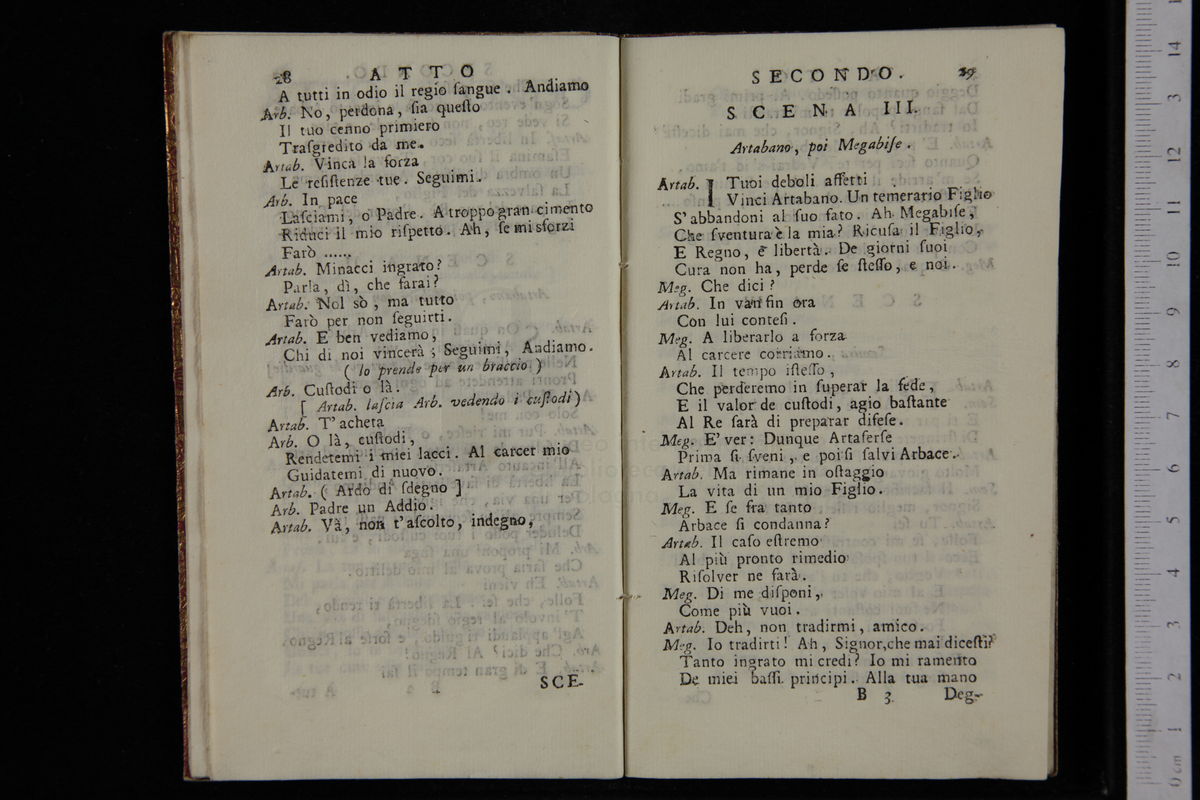 28 ATTO
A tutti in odio il regio ſangue. Andiamo
Arb. No, perdona, ſia queſto
Il tuo cenno primiero
Traſgredito da me.
Artab. Vinca la forza
Le reſiſtenze tue. Seguimi.
Arb. In pace
Laſciami, o Padre. A troppo gran cimento
Riduci il mio riſpetto. Ah, ſe mi sforzi
Farò ......
Artab. Minacci ingrato?
Parla, dì, che farai?
Artab. Nol sò, ma tutto
Farò per non ſeguirti.
Artab. E ben vediamo,
Chi di noi vincerà; Seguimi, Andiamo.
( lo prende per un braccio )
Arb. Cuſtodi o là.
[ Artab. laſcia Arb. vedendo i cuſtodi )
Artab. T' acheta
Arb. O là, cuſtodi,
Rendetemi i miei lacci. Al carcer mio
Guidatemi di nuovo.
Artab. ( Ardo di ſdegno ]
Arb. Padre un Addio.
Artab. Và, non t'aſcolto, indegno,
SCE-
SECONDO. 29
SCENA III.
Artabano, poi Megabiſe.
Artab. I Tuoi deboli affetti
Vinci Artabano. Un temerario Figlio
S' abbandoni al ſuo fato. Ah Megabiſe,
Che ſventura è la mia? Ricuſa il Figlio,
E Regno, e libertà. De giorni ſuoi
Cura non ha, perde ſe ſteſſo, e noi.
Meg. Che dici?
Artab. In van fin ora
Con lui conteſi.
Meg. A liberarlo a forza
Al carcere corriamo.
Artab. Il tempo iſteſſo,
Che perderemo in ſuperar la fede,
E il valor de cuſtodi, agio baſtante
Al Re ſarà di preparar difeſe.
Meg. E' ver: Dunque Artaſerſe
Prima ſi ſveni, e poi ſi ſalvi Arbace.
Artab. Ma rimane in oſtaggio
La vita di un mio Figlio.
Meg. E ſe fra tanto
Arbace ſi condanna?
Artab. Il caſo eſtremo
Al più pronto rimedio
Riſolver ne farà.
Meg. Di me diſponi,
Come più vuoi.
Artab. Deh, non tradirmi, amico.
Meg. Io tradirti! Ah, Signor, che mai diceſti?
Tanto ingrato mi credi? Io mi ramento
De miei baſſi principi. Alla tua mano
B 3 Deg-